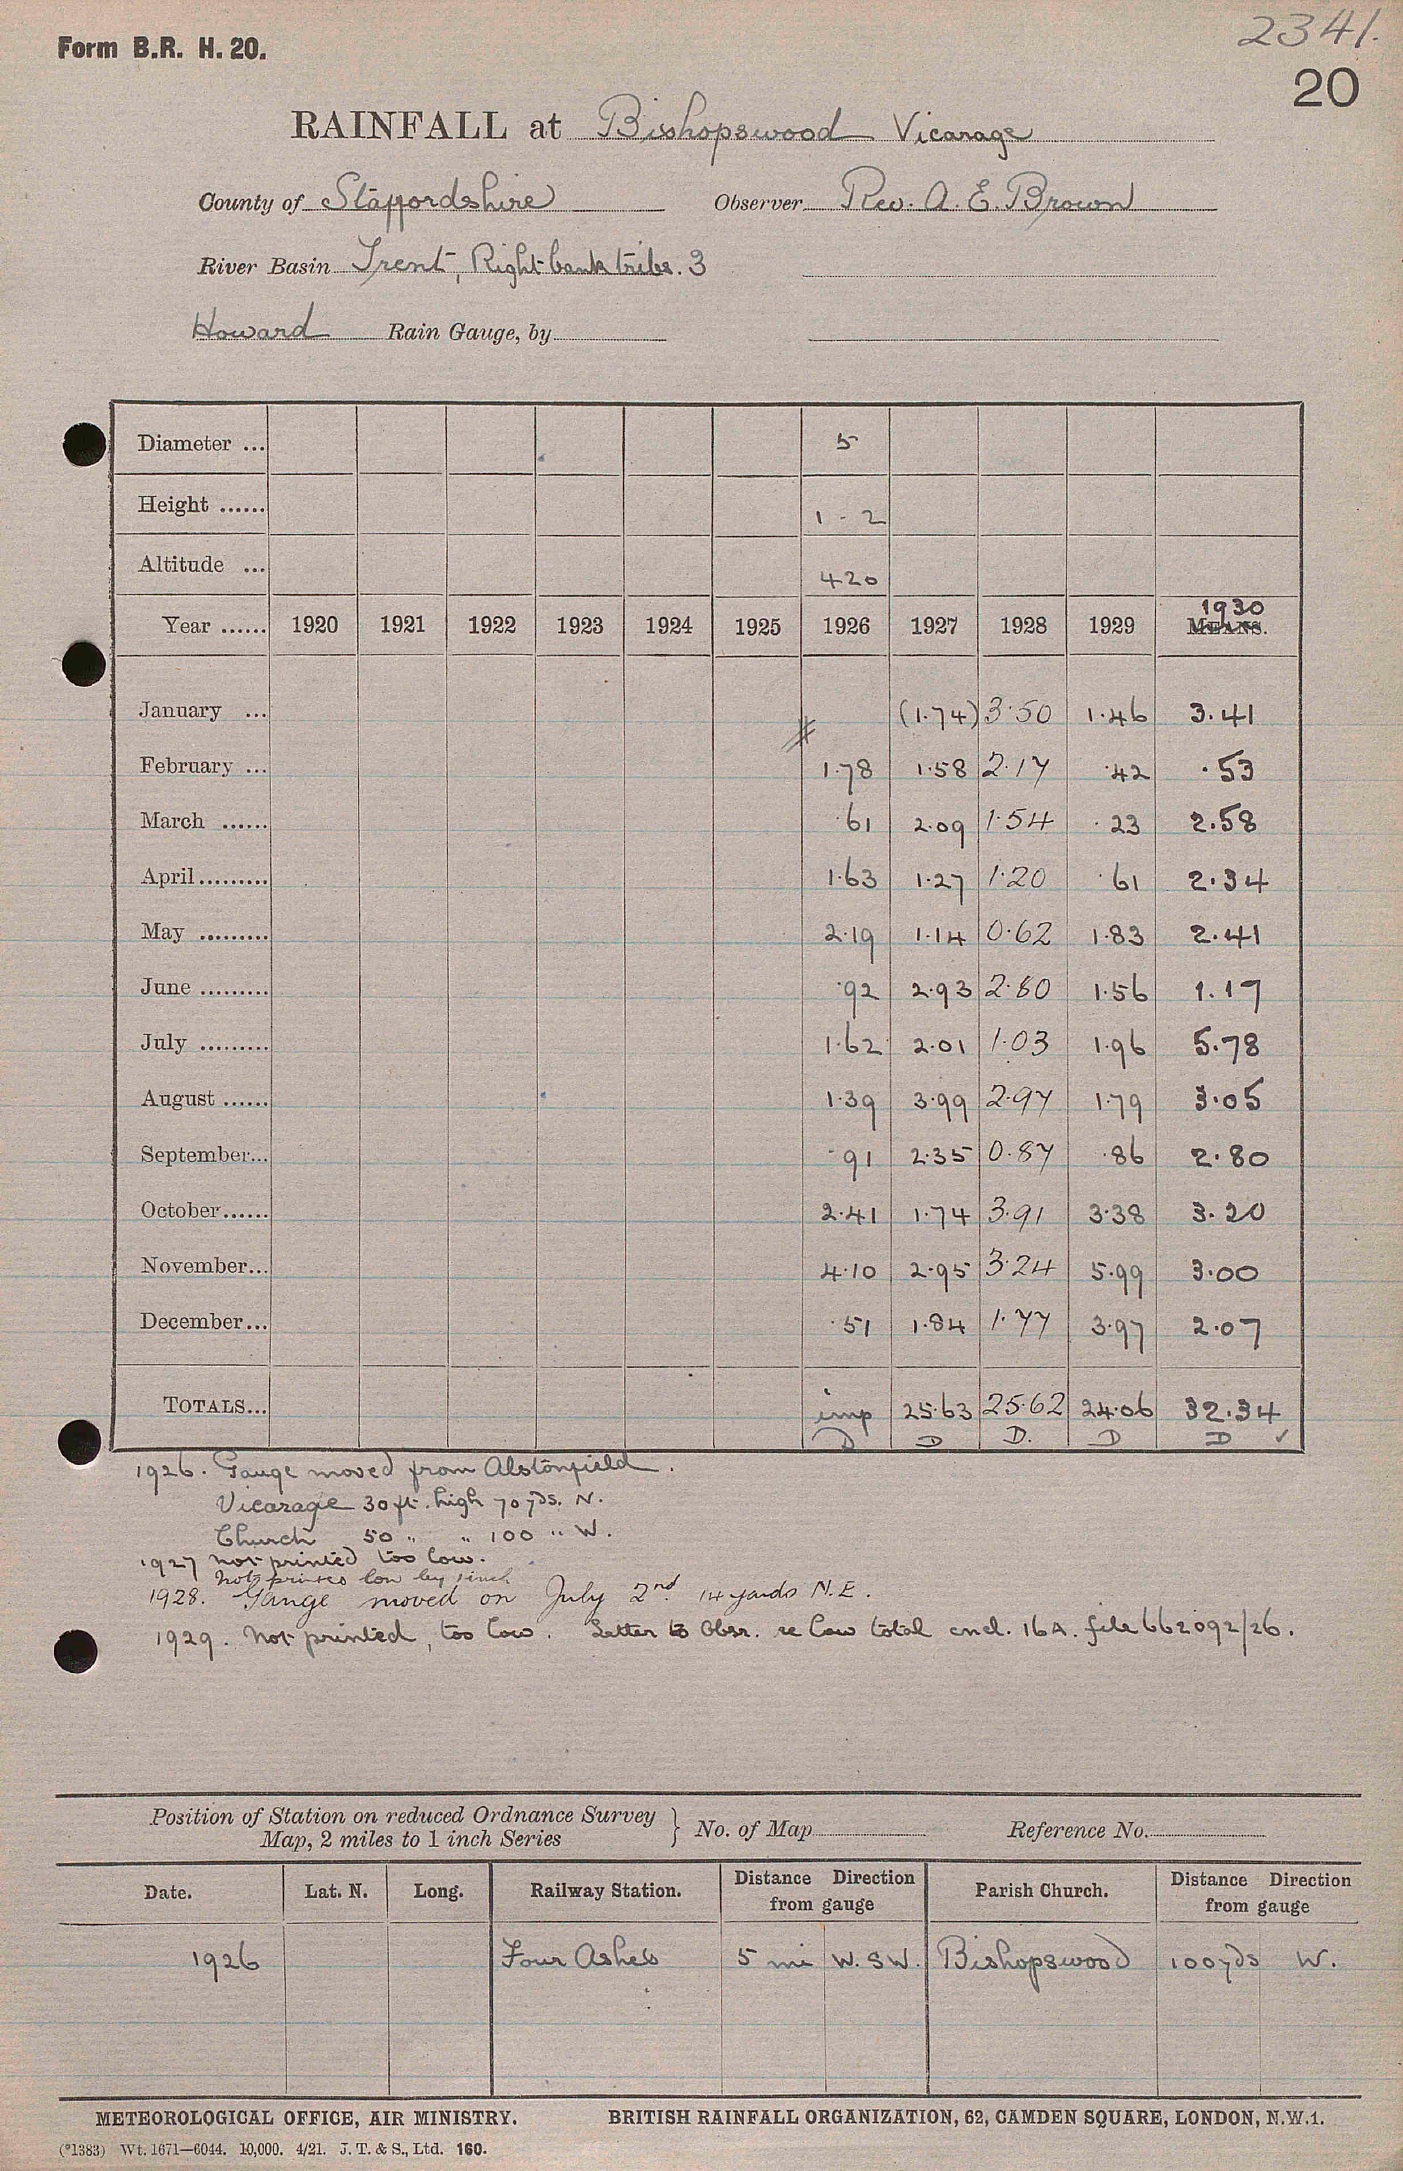 2341.
Form B.R. H. 20.
20
RAINFALL at Bishopswood Vicarage
County of Staffordshire Observer Rev. A. E. Brown
River Basin Trent, Right bank tribs. 3
Howard Rain Gauge, by
Diameter ... 5
Height ...... 1 - 2
Altitude ... 420
1930
Year ...... 1920 1921 1922 1923 1924 1925 1926 1927 1928 1929 MEANS.
January ... (1.74) 3.50 1.46 3.41
February ... 1.78 1.58 2.17 .42 .53
March ...... .61 2.09 1.54 .23 2.58
April......... 1.63 1.27 1.20 .61 2.34
May ......... 2.19 1.14 0.62 1.83 2.41
June ......... .92 2.93 2.80 1.56 1.17
July ......... 1.62 2.01 1.03 1.96 5.78
August ...... 1.39 3.99 2.97 1.79 3.05
September... .91 2.35 0.87 .86 2.80
October...... 2.41 1.74 3.91 3.38 3.20
November... 4.10 2.95 3.24 5.99 3.00
December... .51 1.84 1.77 3.97 2.07
TOTALS... imp 25.63 25.62 24.06 32.34
D D D. D D ✓
1926. Gauge moved from Alstonfield.
Vicarage 30 ft. high 70 yds. N.
Church 50 " " 100 " W.
1927 not printed too low.
Not printed low by 1 inch
1928. Gauge moved on July 2nd. 14 yards N.E.
1929. Not printed, too low. Letter to Obsr. re low total encl. 16A. file 662092/26.
Position of Station on reduced Ordnance Survey
Map, 2 miles to 1 inch Series } No. of Map Reference No.
Date. Lat. N. Long. Railway Station. Distance Direction from gauge Parish Church. Distance Direction from gauge
1926 Four Ashes 5 mi W.SW. Bishopswood 100 yds W.
METEOROLOGICAL OFFICE, AIR MINISTRY. BRITISH RAINFALL ORGANIZATION, 62, CAMDEN SQUARE, LONDON, N.W.1.
(*1383) Wt. 1671—6044. 10,000. 4/21. J. T. & S., Ltd. 160.